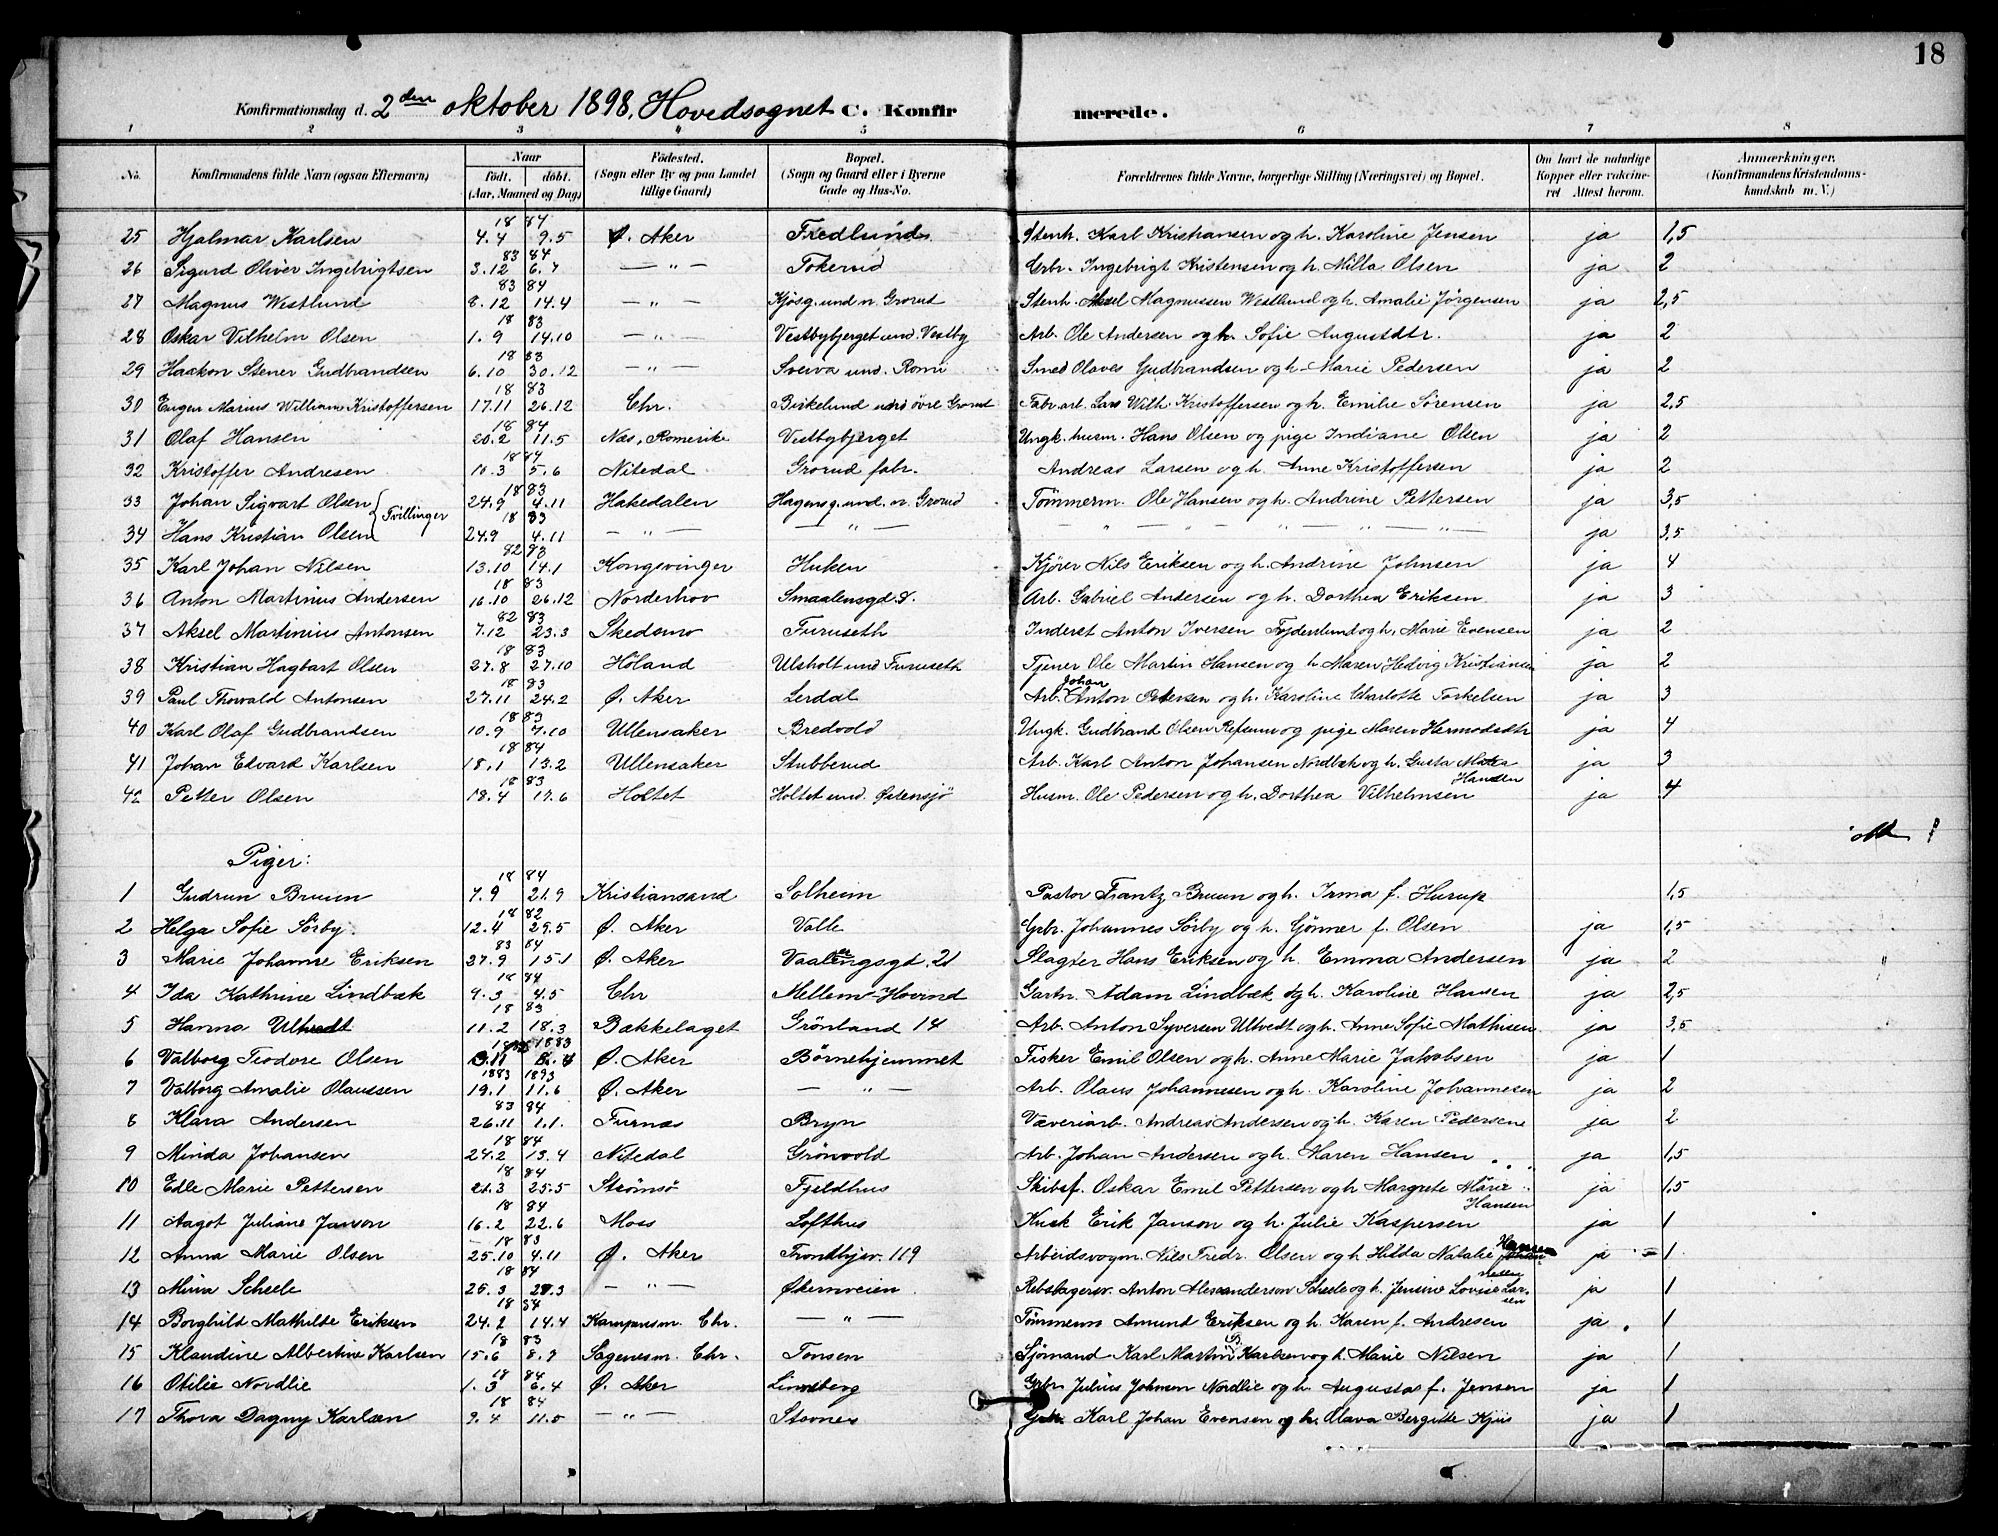 18
Konfirmationsdag d. 2den oktober 1898, Hovedsognet C. Konfirmerede.
1 2 3 4 5 6 7 8
No. Konfirmandens fulde Navn (ogsaa Efternavn) Naar født. døbt. (Aar, Maaned og Dag) Fødested. (Sogn eller By og paa Landet tillige Gaard) Bopæl. (Sogn og Gaard eller i Byerne Gade og Hus-No. Forældrenes fulde Navne, borgerlige Stilling (Næringsvei) og Bopæl. Om havt de naturlige Kopper eller vaccineret Attest herom. Anmærkninger. (Konfirmandens Kristendomskundskab m. V.)
25 Hjalmar Karlsen 18 84 4.4 9.5 Ø. Aker Fredlund Stenh. Karl Kristiansen og h. Karoline Jensen ja 1,5
26 Sigurd Oliver Ingebrigtsen 83 84 3.12 6.7 — " — Tokerud Grbr. Ingebrigt Kristensen og h. Milla Olsen ja 2
27 Magnus Westlund 83 84 8.12 14.4 — " — Kjøsg. und n. Grorud Stenh. Aksel Magnussen Westlund og h. Amalie Jørgensen ja 2,5
28 Oskar Vilhelm Olsen 18 83 1.9 14.10 — " — Vestbybjerget und. Vestby Arb. Ole Andersen og h. Sofie Augustdtr. ja 2
29 Haakon Stener Gudbrandsen 18 83 6.10 30.12 — " — Sveiva und. Romi Smed Olaves Gudbrandsen og h. Marie Pedersen ja 2
30 Eugen Marius William Kristoffersen 18 83 17.11 26.12 Chr. Birkelund und øvre Grorud Fabr. arb. Lars Wilh. Kristoffersen og h. Emilie Sørensen ja 2,5
31 Olaf Hansen 18 84 20.2 11.5 Næs, Romerike Vestbybjerget Ungk. husm. Hans Olsen og pige Indiane Olsen ja 2
32 Kristoffer Andresen 18 84 10.3 5.6 Nitedal Grorud fabr. Andreas Larsen og h. Anne Kristoffersen ja 2
33 Johan Sigvart Olsen } Tvillinger 18 83 24.9 4.11 Hakedalen Hagensg. und. n. Grorud Tømmerm. Ole Hansen og h. Andrine Pettersen ja 3,5
34 Hans Kristian Olsen 18 83 24.9 4.11 — " — — " — — " — ja 3,5
35 Karl Johan Nilsen 82 83 13.10 14.1 Kongsvinger Huken Kjører Nils Eriksen og h. Andrine Johnsen ja 4
36 Anton Martinius Andersen 18 83 16.10 26.12 Norderhov Smaalensgd. Arb. Gabriel Andersen og h. Dorthea Eriksen ja 3
37 Aksel Martinius Antonsen 82 83 7.12 23.3 Skedsmo Furuseth Inderst Anton Iversen og h. Marie Evensen ja 2
38 Kristian Hagbart Olsen 18 83 27.8 27.10 Høland Ulsholt und Furuseth Tjener Ole Martin Hansen og h. Maren Hedvig Kristiansen ja 2
39 Paul Thorvald Antonsen 18 83 27.11 24.2 Ø. Aker Lerdal Arb. Johan Anton Petersen og h. Karoline Charlotte Torkelsen ja 3
40 Karl Olaf Gudbrandsen 18 83 10.9 7.10 Ullensaker Bredvold Ungk. Gudbrand Olsen Refsum og pige Maren Hermodsdtr ja 4
41 Johan Edvard Karlsen 18 84 18.1 13.2 Ullensaker Stubberud Arb. Karl Anton Johansen Nordbæk og h. Gusta Hansen ja 3
42 Petter Olsen 18 83 18.4 17.6 Holtet Holtet und. Østensjø Husm. Ole Pedersen og h. Dorthea Vilhelmsen ja 4
Piger:
1 Gudrun Bruun 18 84 7.9 21.9 Kristiansand Solheim Pastor Frantz Bruun og h. Irma f. Hurup 1,5
2 Helga Sofie Sørby 18 82 12.4 29.5 Ø. Aker Valle Grbr. Johannes Sørby og h. Gønner f. Olsen ja 1,5
3 Marie Johanne Eriksen 83 84 27.9 15.1 Ø. Aker Vaalengsgd. 21 Slagter Hans Eriksen og h. Emma Andersen ja 2
4 Ida Kathrine Lindbæk 18 84 9.3 4.5 Chr Mellem-Hovind Gartn. Adam Lindbæk og h. Karoline Hansen ja 2,5
5 Hanna Ultvedt 18 83 11.2 18.3 Bækkelaget Grønland 14 Arb. Anton Syversen Ultvedt og h. Anne Sofie Mathisen ja 3,5
6 Valborg Teodore Olsen 1883 Ø. Aker Børnehjemmet Fisker Emil Olsen og h. Anne Marie Jakobsen ja 1
7 Valborg Amalie Olaussen 1883 1893 19.1 11.6 Ø. Aker — " — Arb. Olaus Johannesen og h. Karoline Johannesen ja 2
8 Klara Andersen 83 84 26.11 1.1. Furnæs Bryn Væveriarb. Andreas Andersen og h. Karen Pedersen ja 2
9 Minda Johansen 18 84 24.2 13.4 Nitedal Grønvold Arb. Johan Andersen og h. Maren Hansen ja 1,5
10 Edle Marie Pettersen 18 84 21.3 25.5 Strømsø Fjeldhus Skibsf. Oskar Emil Pettersen og h Margrete Marie Hansen ja 1,5
11 Aagot Juliane Janson 18 84 16.2 22.6 Moss Lofthus Kusk Erik Janson og h. Julie Kaspersen ja 1
12 Anna Marie Olsen 18 83 25.10 4.11 Ø. Aker Trondhjev. 119 Arbeidsvogm. Nils Fredr. Olsen og h. Hilda Natalie Hansen ja 1
13 Mina Scheele 18 84 25.3 29.3 — " — Økernveien Rebslagersv. Anton Alexanderson Scheele og h. Jensine Lovise Larsen ja 1
14 Borghild Mathilde Eriksen 18 84 24.2 14.4 Kampensm. Chr. — " — Tømmerm Amund Eriksen og h. Karen f. Andresen ja 1
15 Klaudine Albertine Karlsen 18 83 15.6 8.9 Sagenesm. Chr. Tonsen Sjømand Karl Martin Karlsen og h. Marie Nilsen ja 1
16 Otilie Nordlie 18 84 1.3 6.4 Ø. Aker Lindeberg Grbr Julius Johnsen Nordlie og h. Augusta f. Jensen ja 1
17 Thora Dagny Karlsen 18 84 9.4 11.5 — " — Stovner Grbr. Karl Johan Evensen og h. Olava Bergitte Kjiis ja 1